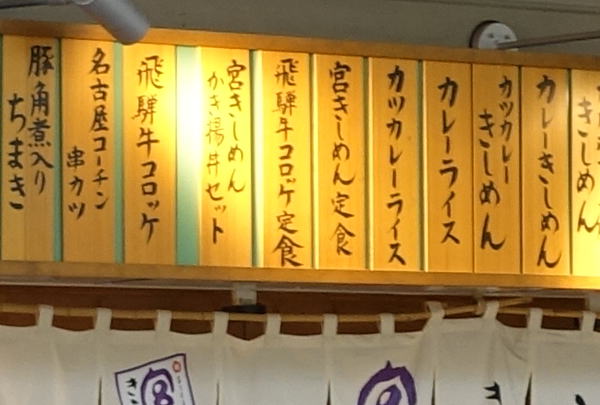 きしめん
カレーきしめん
カツカレー
きしめん
カレーライス
カツカレーライス
宮きしめん定食
飛騨牛コロッケ定食
宮きしめん
かき揚丼セット
飛騨牛コロッケ
名古屋コーチン
串カツ
豚角煮入り
ちまき